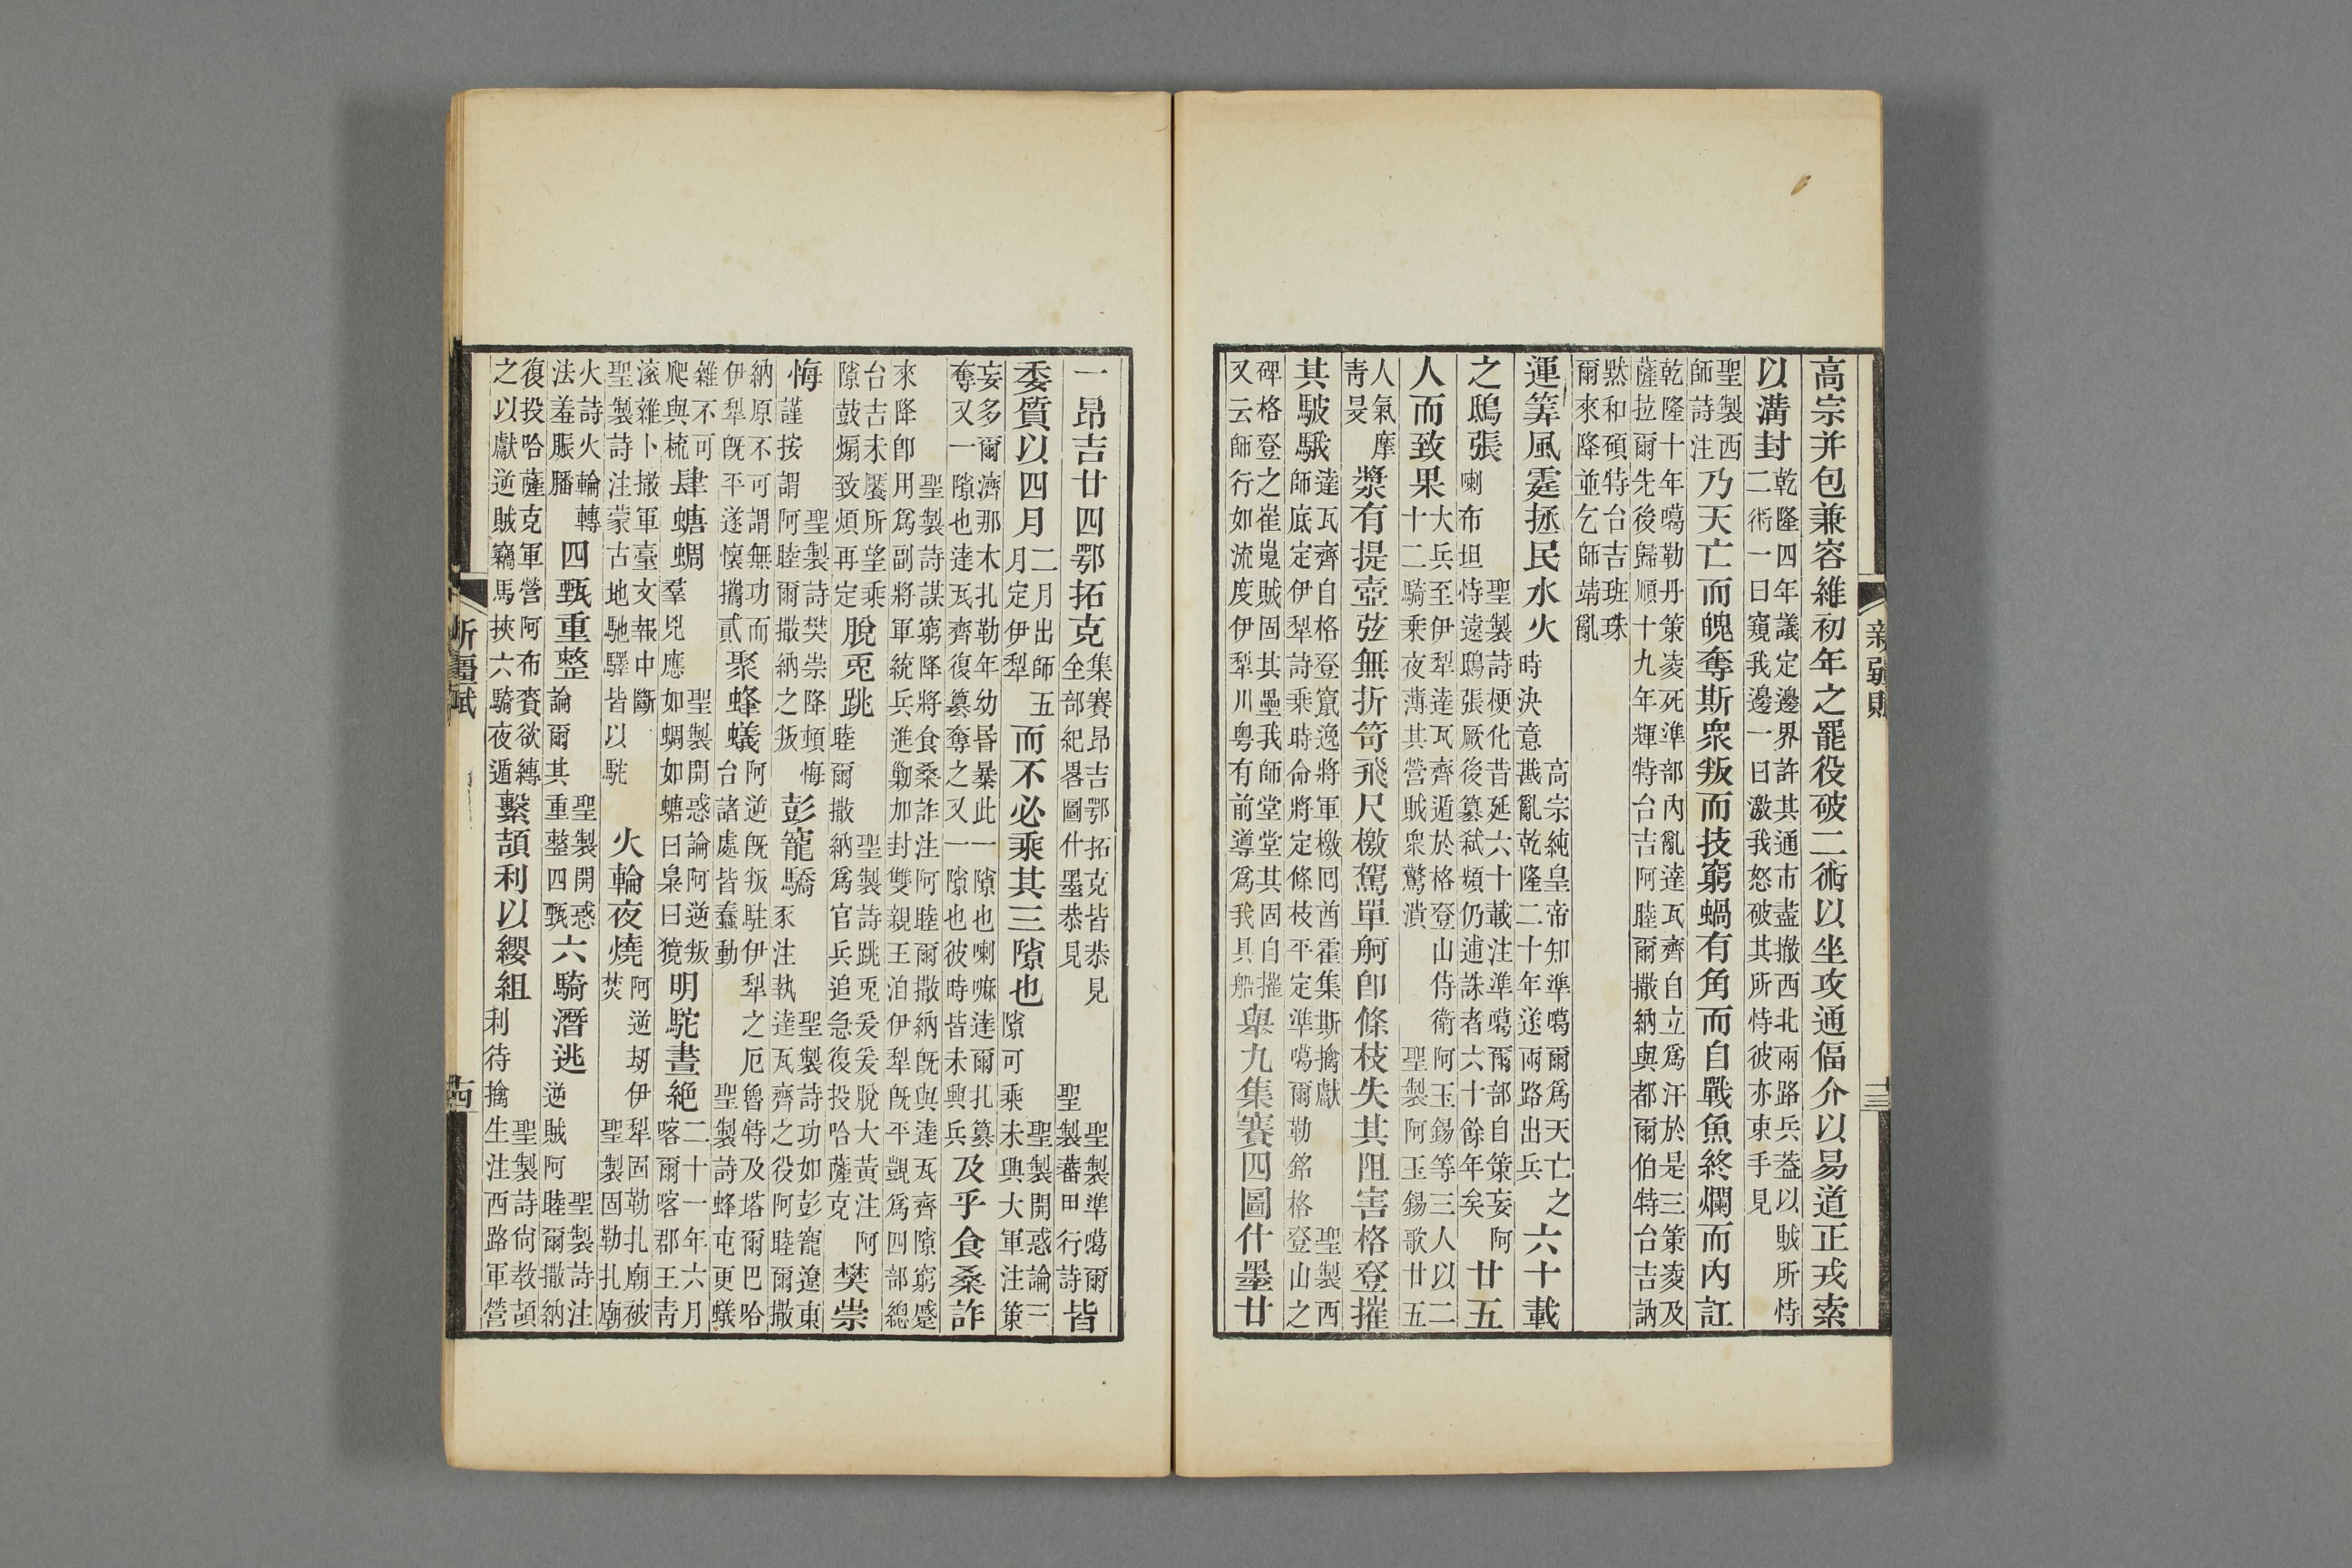 新疆賦
十三
高宗并包兼容維初年之罷役破二術以坐攻通偪介以易道正戎索
以溝封
乾隆四年議定邊界許其通市盡撤西北兩路兵葢以賊所恃
二術一曰窺我邊一曰激我怒破其所恃彼亦束手見
聖製西
師詩注
乃天亡而魄奪斯衆叛而技窮蝸有角而自戰魚終爛而內訌
乾隆十年噶勒丹策凌死準部內亂達瓦齊自立爲汗於是三策凌及
薩拉爾先後歸順十九年輝特台吉阿睦爾撒納與都爾伯特台吉訥
默和碩特台吉班珠
爾來降並乞師靖亂
運筭風霆拯民水火
高宗純皇帝知準噶爾爲天亡之
時決意戡亂乾隆二十年遂兩路出兵
六十載
之鴟張
聖製詩梗化昔延六十載注準噶爾部自策妄阿
喇布坦恃遠鴟張厥後篡弑頻仍逋誅者六十餘年矣
廿五
人而致果
大兵至伊犁達瓦齊遁於格登山侍衛阿玉錫等三人以二
十二騎乘夜薄其營賊衆驚潰 聖製阿玉錫歌廿五
人氣摩
青旻
槳有提壺弦無折笴飛尺檄駕單舸卽條枝失其阻害格登摧
其駊騀
達瓦齊自格登竄逸將軍檄回酋霍集斯擒獻 聖製西
師底定伊犁詩乘時命將定條枝平定準噶爾勒銘格登山之
碑格登之崔嵬賊固其壘我師堂堂其固自摧
又云師行如流度伊犁川粵有前導爲我具船
舉九集賽四圖什墨廿
一昂吉廿四鄂拓克
集賽昂吉鄂拓克皆恭見 聖製準噶爾
全部紀畧圖什墨恭見 聖製蕃田行詩
皆
委質以四月
二月出師五
月定伊犁
而不必乘其三隙也
聖製開惑論三
隙可乘未與大軍注策
妄多爾濟那木扎勒年幼昏暴此一隙也喇嘛達爾扎篡
奪又一隙也達瓦齊復篡奪之又一隙也彼時皆未興兵
及乎食桑詐
聖製詩謀窮降將食桑詐注阿睦爾撒納旣與達瓦齊隙窮蹙
來降卽用爲副將軍統兵進勦加封雙親王洎伊犁旣平凱爲四部總
台吉未饜所望乘
隙鼓煽致煩再定
脫兎跳
聖製詩跳兎爰爰脫大黃注阿
睦爾撒納爲官兵追急復投哈薩克
樊崇
悔
聖製詩樊崇降頓悔
謹按謂阿睦爾撒納之叛
彭寵驕
聖製詩功如彭寵遼東
豕注執達瓦齊之役阿睦爾撒
納原不可謂無功而
伊犁旣平遂懷攜貳
聚蜂蟻
阿逆旣叛駐伊犁之厄魯特及塔爾巴哈
台諸處皆蠢動 聖製詩蜂屯更蟻
雜不可
爬與梳
肆螗蜩羣兇應
聖製開惑論阿逆叛
如蜩如螗曰梟曰獍
明駝晝絕
二十一年六月
喀爾喀郡王青
滾雜卜撤軍臺文報中斷
聖製詩注蒙古地馳驛皆以駝
火輪夜燒
阿逆刼伊犁固勒扎廟被
焚 聖製固勒扎廟
火詩火輪轉
法羞脤膰
四甄重整
聖製開惑
論爾其重整四甄
六騎潛逃
聖製詩注
逆賊阿睦爾撒納
復投哈薩克軍營阿布賚欲縛
之以獻逆賊竊馬挾六騎夜遁
繫頡利以纓組
聖製詩尙教頡
利待擒生注西路軍營
新疆賦
十四